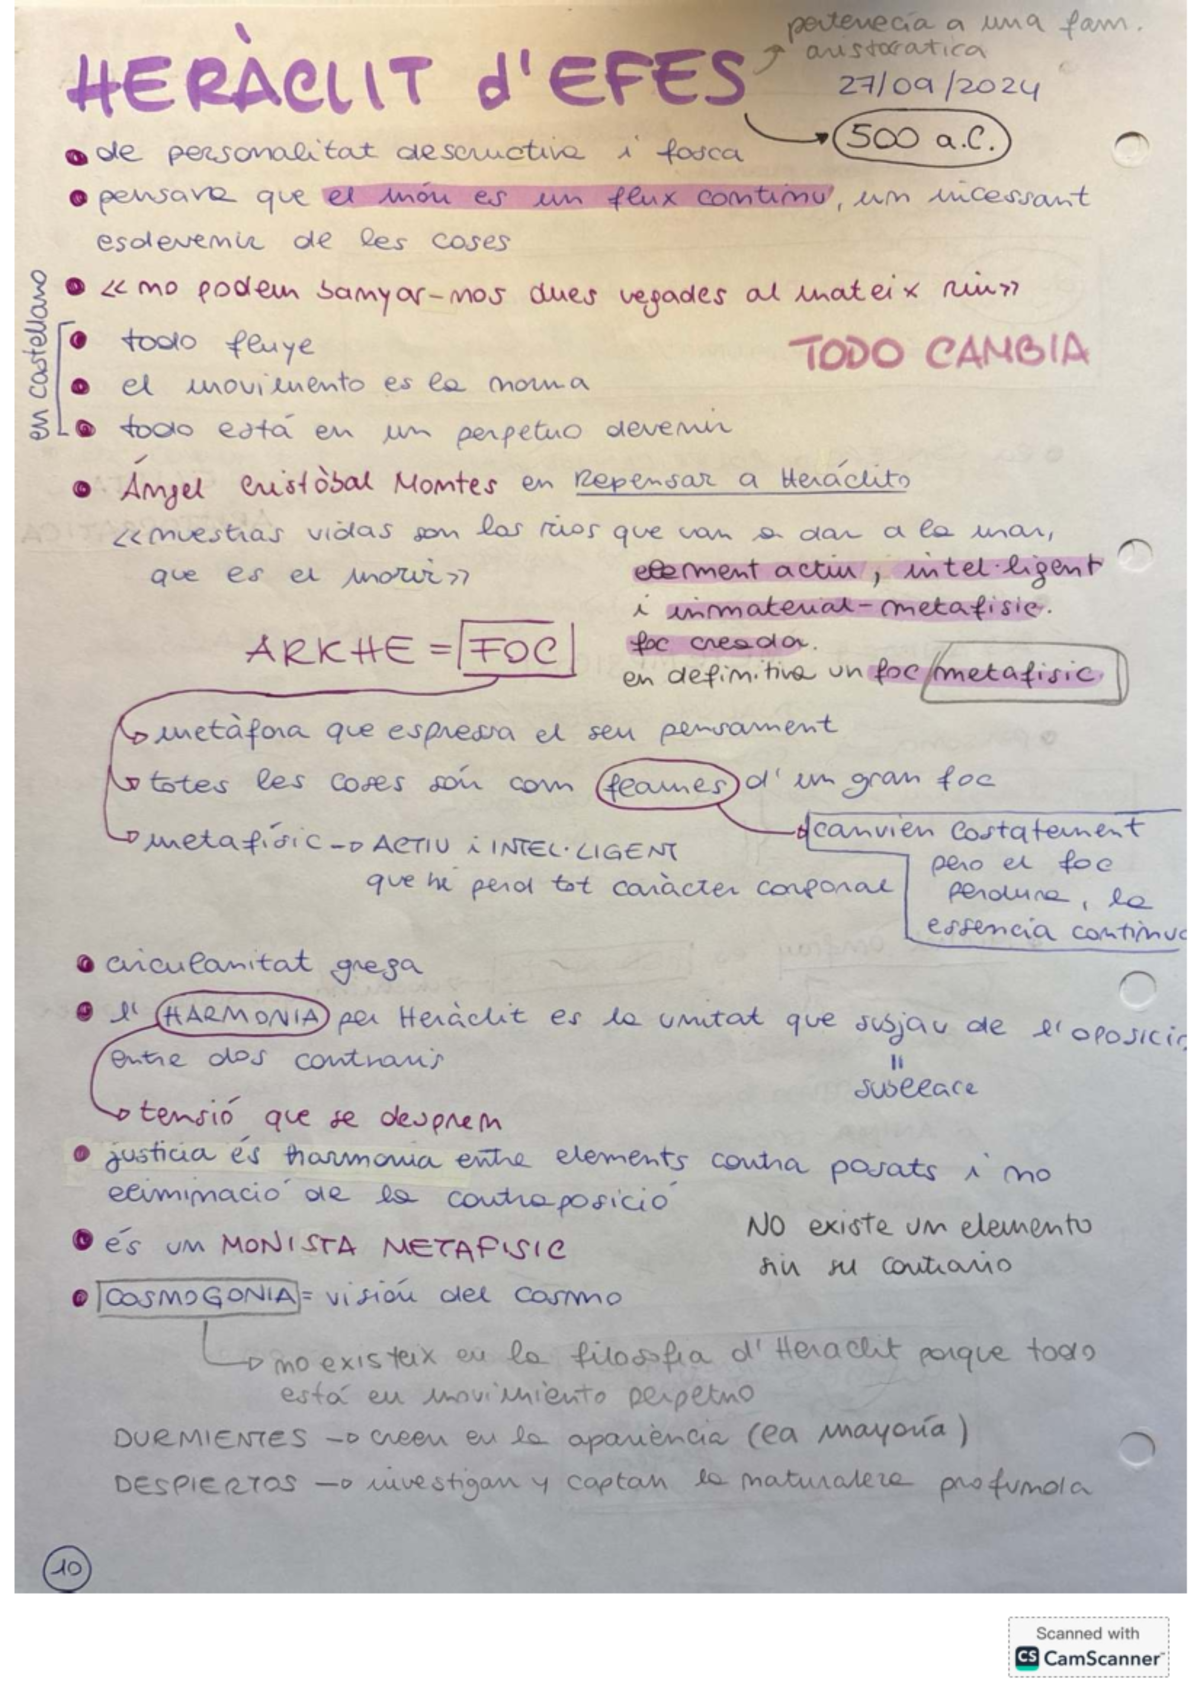 pertenecía a una fam.
aristocratica
HERÀCLIT d'EFES
27/09/2024
500 a.C.
de personalitat descructiva i fosca
pensava que el món es un flux continu, um incessant
esdevenir de les coses
«no podem banyar-nos dues vegades al mateix riu»
en castellano
todo fluye
TODO CAMBIA
el movimento es la norma
todo está en un perpetuo devenir
Ángel Cristòbal Montes en Repensar a Heráclito
«nuestras vidas son los rios que van a dar a la mar,
que es el morir»
element actiu, intel·ligent
i inmaterial-metafisic.
foc creador.
en definitiva un foc metafisic
ARKHE = FOC
metàfora que espressa el seu pensament
totes les coses són com flames d'un gran foc
canvien costatement
pero el foc
perdura, la
essencia continua
metafísic → ACTIU i INTEL·LIGENT
que he perd tot caràcter corporal
circularitat grega
l'HARMONIA per Heràclit es la unitat que subjau de l'oposició
entre dos contraris
=
subllace
tensió que se desprem
justicia és harmonia entre elements contra posats i no
eliminació de la contraposició
NO existe un elemento
sin su contrario
és um MONISTA METAFISIC
COSMOGONIA = visión del cosmo
no existeix en la filosofia d'Heraclit porque todo
está en movimiento perpetuo
DURMIENTES → creen en la apariència (la mayoría)
DESPIERTOS → investigan y captan la naturaleza profunda
10
Scanned with
CS CamScanner